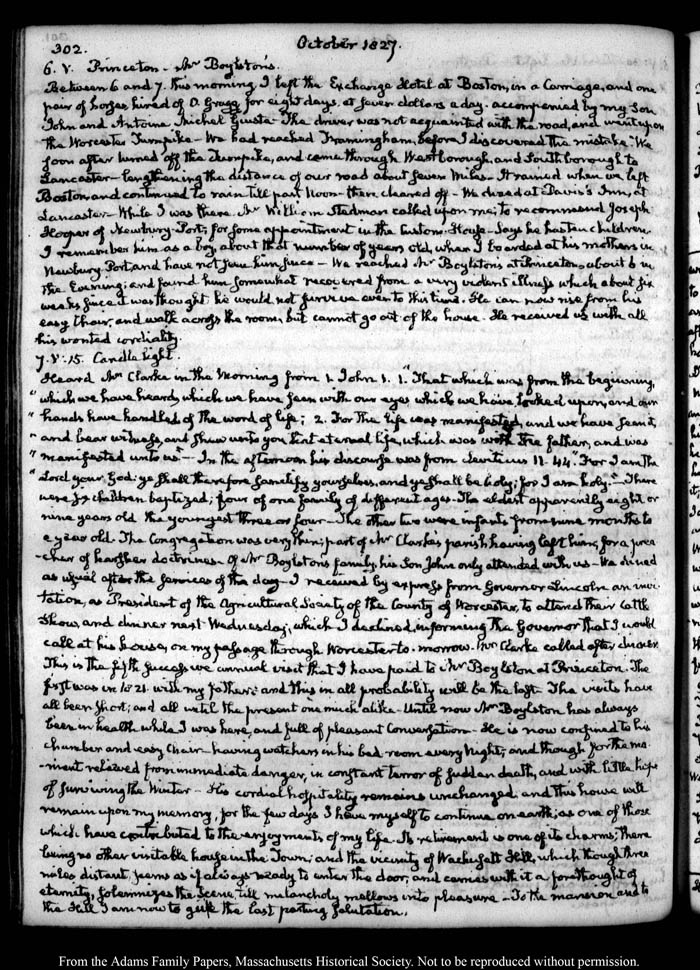 302.
October 1827.
6. V. Princeton – Mr Boylston's.
Between 6 and 7. this morning I left the Exchange Hotel at Boston, in a Carriage, and one
pair of horses hired of D. Gragg for eight days, at seven dollars a day. accompanied by my Son
John and Antoine Michel Giusta. The driver was not acquainted with the road, and went upon
the Worcester Turnpike – We had reached Framingham, before I discovered the mistake. We
soon after turned off the Turnpike, and came through Westborough, and Southborough to
Lancaster – lengthening the distance of our road about seven Miles. It rained when we left
Boston and continued to rain till past Noon – then cleared off – We dined at Davis's Inn, at
Lancaster – While I was there Mr William Stedman called upon me; to recommend Joseph
Hooper of Newbury-Port, for some appointment in the Custom-House – Says he has ten children.
I remember him as a boy, about that number of years old, when I boarded at his mothers in
Newbury Port and have not seen him since – We reached Mr Boylston's at Princeton about 6 in
the Evening; and found him somewhat recovered from a very violent illness which about six
weeks since it was thought he would not survive even to this time. He can now rise from his
easy chair, and walk across the room, but cannot go out of the house. He received us with all
his wonted cordiality.
7. V. 15. Candle light.
Heard Mr Clarke in the Morning from 1. John 1. 1. "That which was from the beginning,
" which we have heard, which we have seen with our eyes which we have looked upon, and our
" hands have handled of the word of life; 2. For the life was manifested, and we have seen it,
" and bear witness, and shew unto you that eternal life, which was with the father, and was
" manifested unto us" – In the afternoon his discourse was from Leviticus 11. 44. "For I am the
" Lord your God: ye shall therefore sanctify yourselves, and ye shall be holy; for I am holy." – There
were six children baptized; four of one family of different ages. The eldest apparently eight or
nine years old the youngest three or four – The other two were infants from nine months to
a year old. The Congregation was very thin; part of Mr Clarke's parish having left him, for a prea
-cher of harsher doctrines – Of Mr Boylston's family, his Son John only attended with us – We dined
as usual after the services of the day – I received by express from Governor Lincoln an invi-
tation, as President of the Agricultural Society of the County of Worcester, to attend their Cattle
Show, and dinner next Wednesday; which I declined, informing the Governor that I would
call at his house, on my passage through Worcester to-morrow. Mr Clarke called after dinner.
This is the fifth successive annual visit that I have paid to Mr Boylston at Princeton. The
first was in with my father: and this in all probability will be the last. The visits have
all been short; and all until the present one much alike – Until now Mr Boylston has always
been in health while I was here, and full of pleasant Conversation – He is now confined to his
chamber and easy Chair – having watchers in his bed room every Night; and though for the mo-
-ment relieved from immediate danger, in constant terror of sudden death, and with little hope
of surviving the Winter – His cordial hospitality remains unchanged, and this house will
remain upon my memory, for the few days I have myself to continue on earth, as one of those
which have contributed to the enjoyments of my life. Its retirement is one of its charms; there
being no other visitable house in the Town; and the vicinity of Wachusett Hill, which though three
miles distant, seems as if always ready to enter the door; and carries with it a forethought of
eternity, solemnizes the scene, till melancholy mellows into pleasure – To the mansion and to
the Hill I am now to give the last parting salutation.
From the Adams Family Papers, Massachusetts Historical Society. Not to be reproduced without permission.